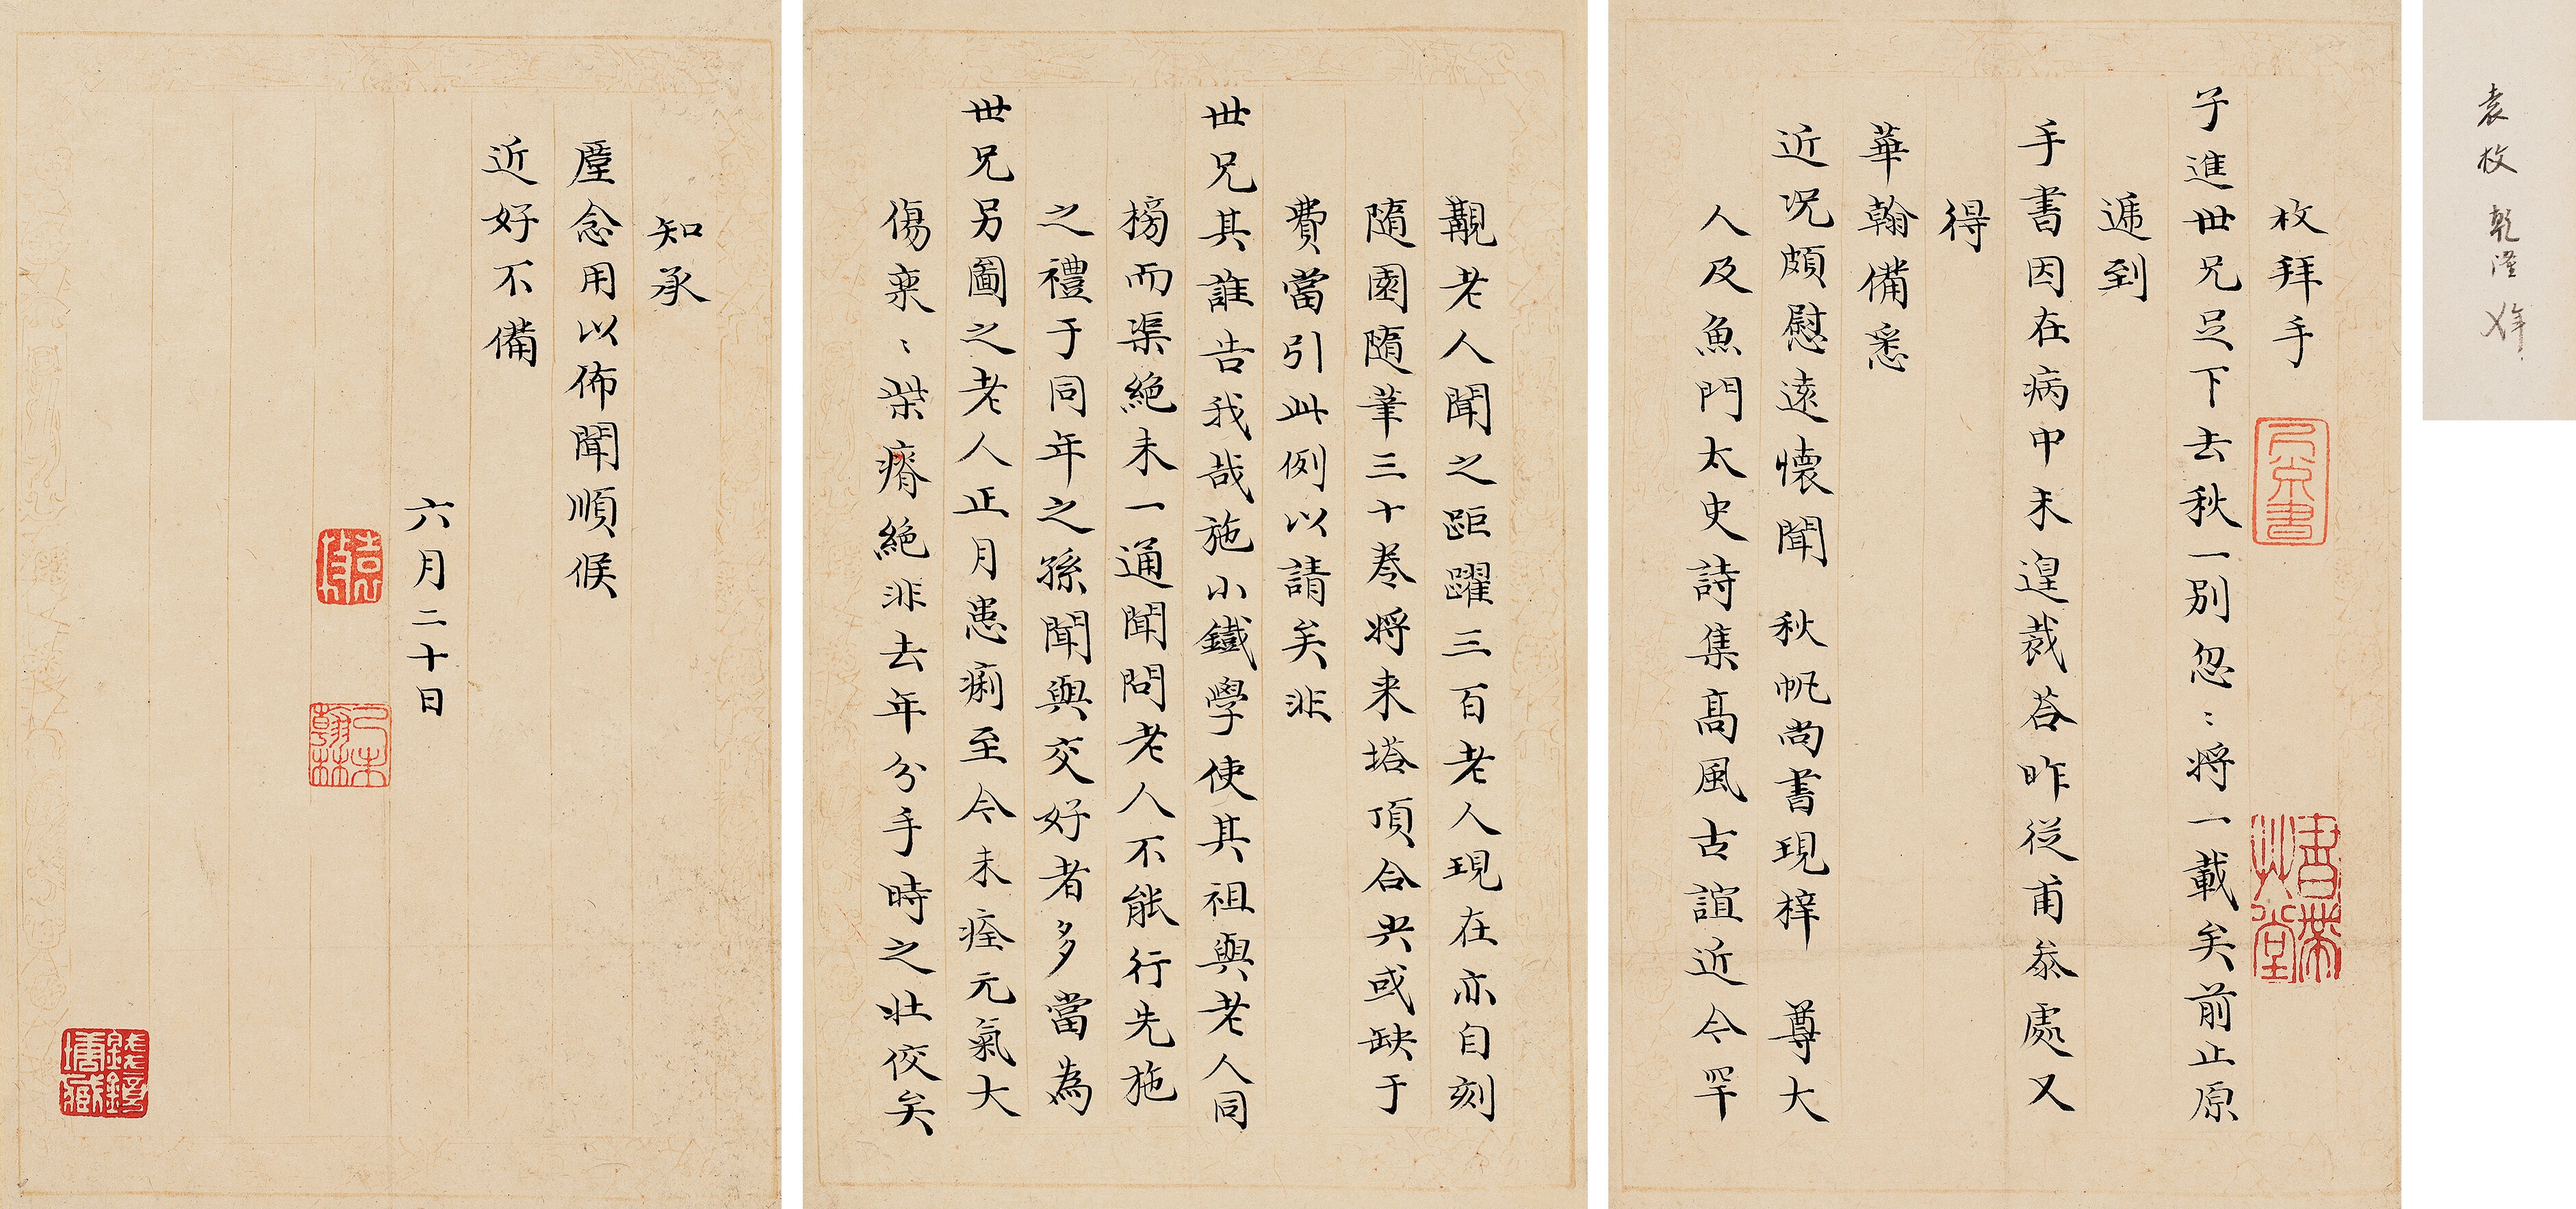 袁枚 乾隆
枚拜手
子進世兄足下去秋一別忽〻將一載矣前止原
遞到
手書因在病中未遑裁荅昨從甫叅處又
得
華翰備悉
近况頗慰遠懷聞 秋帆尚書現梓 尊大
人及魚門太史詩集高風古誼近今罕
覯老人聞之距躍三百老人現在亦自刻
隨園隨筆三十卷將来塔頂合尖或缺于
費當引此例以請矣非
世兄其誰告我哉施小鐵學使其祖與老人同
榜而渠絕未一通聞問老人不能行先施
之禮于同年之孫聞與交好者多當為
世兄另圖之老人正月患痢至今未痊元氣大
傷欒〻瘠絕非去年分手時之壯佼矣
知承
廑念用以佈聞順候
近好不備
六月二十日
書帶草堂
袁枚
己未翰林
錢鏡塘藏